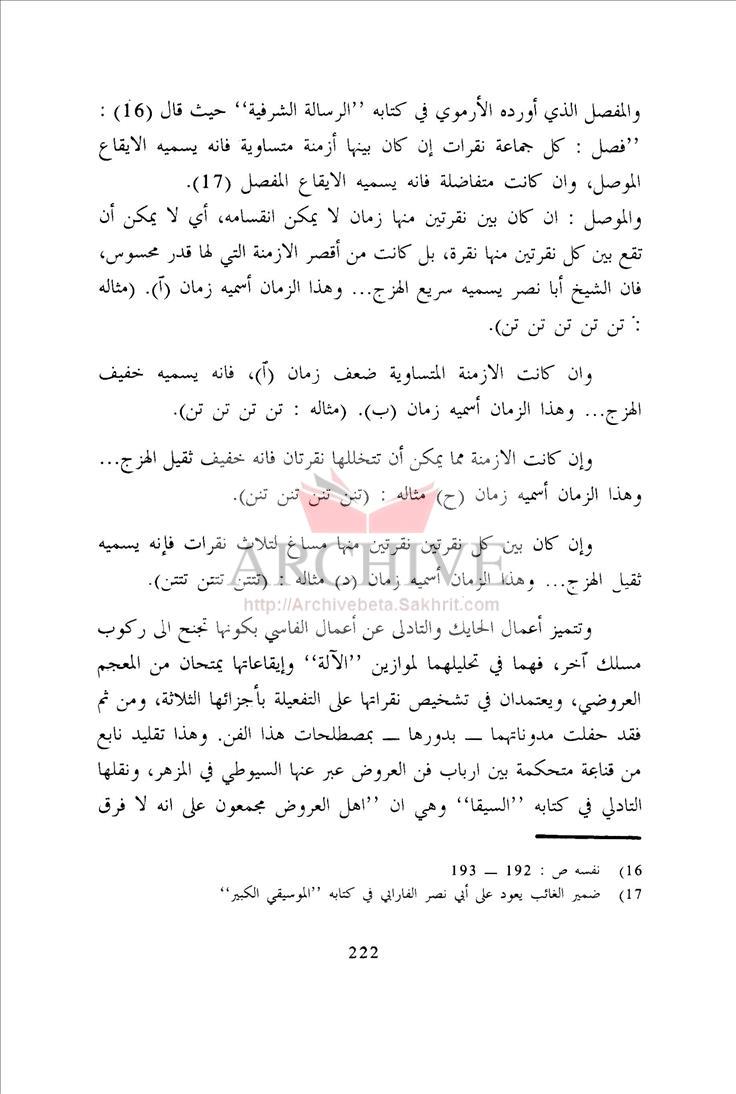 والمفصل الذي أورده الأرموي في كتابه ’’الرسالة الشرفية‘‘ حيث قال (16) :
’’فصل : كل جماعة نقرات إن كان بينها أزمنة متساوية فانه يسميه الايقاع
الموصل، وان كانت متفاضلة فانه يسميه الايقاع المفصل (17).
والموصل : ان كان بين نقرتين منها زمان لا يمكن انقسامه، أي لا يمكن أن
تقع بين كل نقرتين منها نقرة، بل كانت من أقصر الازمنة التي لها قدر محسوس،
فان الشيخ أبا نصر يسميه سريع الهزج... وهذا الزمان أسميه زمان (آ). (مثاله
: تن تن تن تن تن).
وان كانت الازمنة المتساوية ضعف زمان (آ)، فانه يسميه خفيف
الهزج... وهذا الزمان أسميه زمان (ب). (مثاله : تن تن تن تن).
وإن كانت الازمنة مما يمكن أن تتخللها نقرتان فانه خفيف ثقيل الهزج...
وهذا الزمان أسميه زمان (ح) مثاله : (تنن تنن تنن تنن).
وإن كان بين كل نقرتين نقرتين منها مساغ لتلاث نقرات فإنه يسميه
ثقيل الهزج... وهذا الزمان أسميه زمان (د) مثاله : (تتتن تتتن تتتن).
ARCHIVE
http://Archivebeta.Sakhrit.com
وتتميز أعمال الحايك والتادلى عن أعمال الفاسي بكونها تجنح الى ركوب
مسلك آخر، فهما في تحليلهما لموازين ’’الآلة‘‘ وإيقاعاتها يمتحان من المعجم
العروضي، ويعتمدان في تشخيص نقراتها على التفعيلة بأجزائها الثلاثة، ومن ثم
فقد حفلت مدوناتهما ـــ بدورها ـــ بمصطلحات هذا الفن. وهذا تقليد نابع
من قناعة متحكمة بين ارباب فن العروض عبر عنها السيوطي في المزهر، ونقلها
التادلي في كتابه ’’السيقا‘‘ وهي ان ’’اهل العروض مجمعون على انه لا فرق
16) نفسه ص : 192 ـــ 193
17) ضمير الغائب يعود على أبي نصر الفارابي في كتابه ’’الموسيقي الكبير‘‘
222